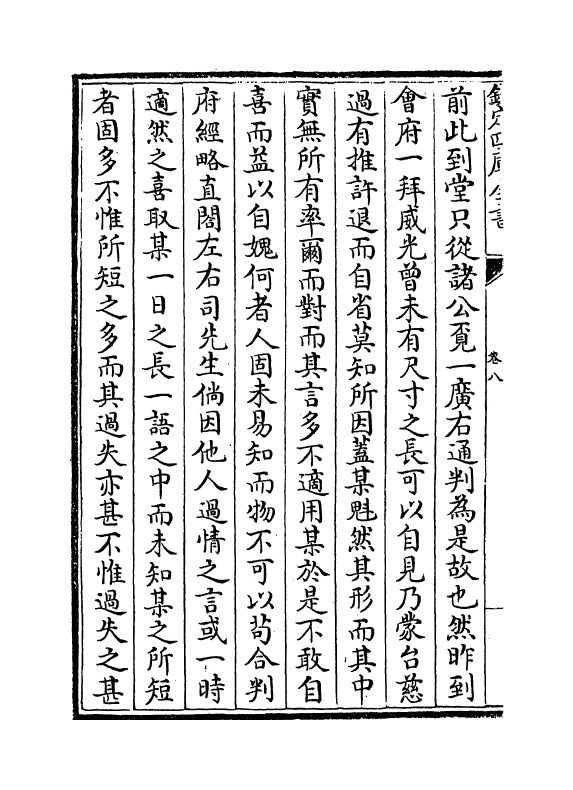 欽定四庫全書
卷八
前此到堂只從諸公覔一廣右通判為是故也然昨到
會府一拜威光曾未有尺寸之長可以自見乃蒙台慈
過有推許退而自省莫知所因蓋某魁然其形而其中
實無所有率爾而對而其言多不適用某於是不敢自
喜而益以自媿何者人固未易知而物不可以茍合判
府經略直閣左右司先生倘因他人過情之言或一時
適然之喜取某一日之長一語之中而未知某之所短
者固多不惟所短之多而其過失亦甚不惟過失之甚